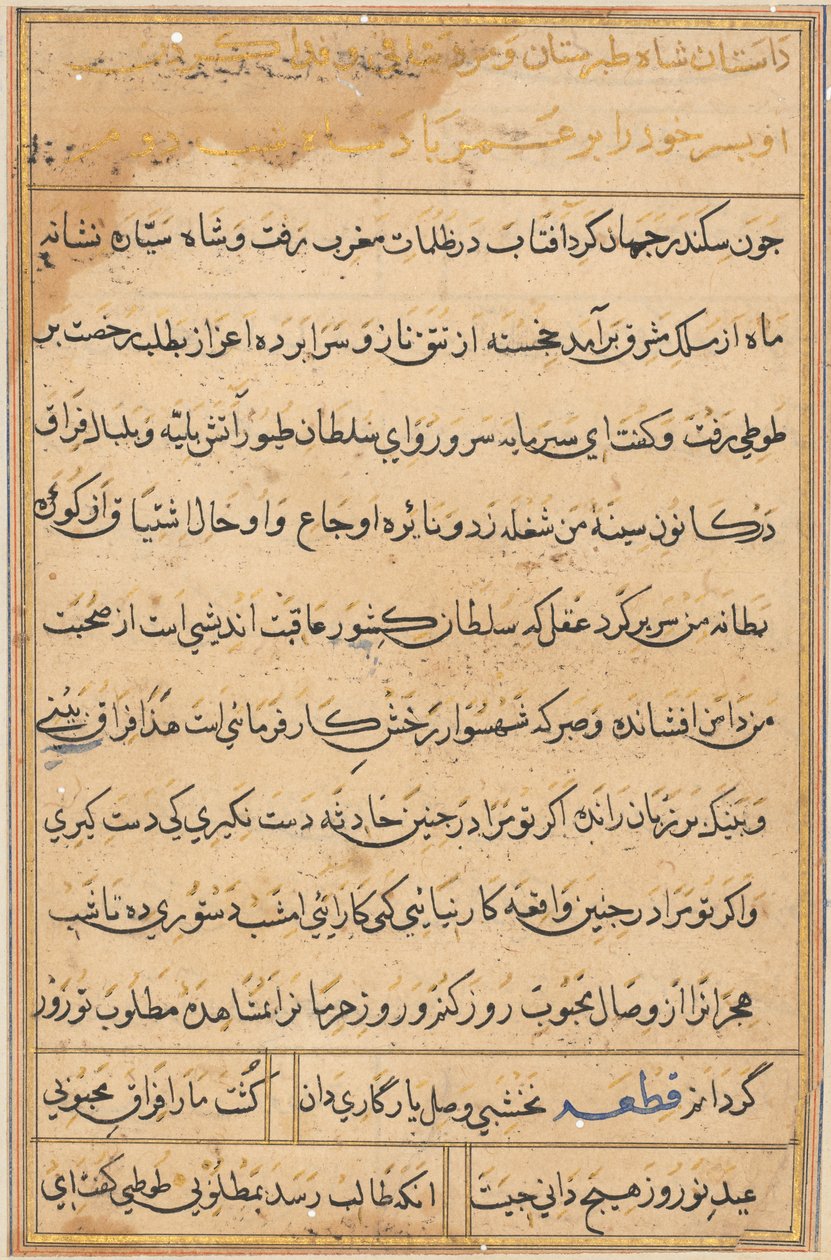 داستان شاه طبرستان و مرد و فدا کردن
او پسر خود را بر عمر پادشاه شب دوم
جون سکندر جهان کرد افتاب در ظلمات مغرب رفت و شاه سیّاره نشانه
ماه از ملک مشرق برآمد خجسته از تتق ناز و سرابرده اعزاز بطلب رخصت بر
طوطي رفت و کفت اي سرمایه سرور و اي سلطان طیور آتش بلیّه و بلبال فراق
در کانون سینۀ من شعله زد و نائره اوجاع و اوحال اشتیاق از کوره
بطانه من سر بر کرد عقل که سلطان کشور عاقبت اندیشي است از صحبت
من دامن افشانده و صبر که شهسوار رخش کار فرمائي است هذا فراق بیني
و بینک بر زبان رانده اکر تو مرا در جنین حادثه دست نکیري کي دست کیري
و اکر تو مرا در جنین واقعه کار نیائي کي کار ائي امشب دستوري ده تا شب
هجرانرا از وصال محبوب روز کنم و روز حرمانرا بمشاهدۀ مطلوب نوروز
کردانم قطعه نخشبي وصل یار کاري دان کشت ما را فراق محبوبي
عید نوروز هیج داني جیست انکه طالب رسد بمطلوبي طوطي کفت اي